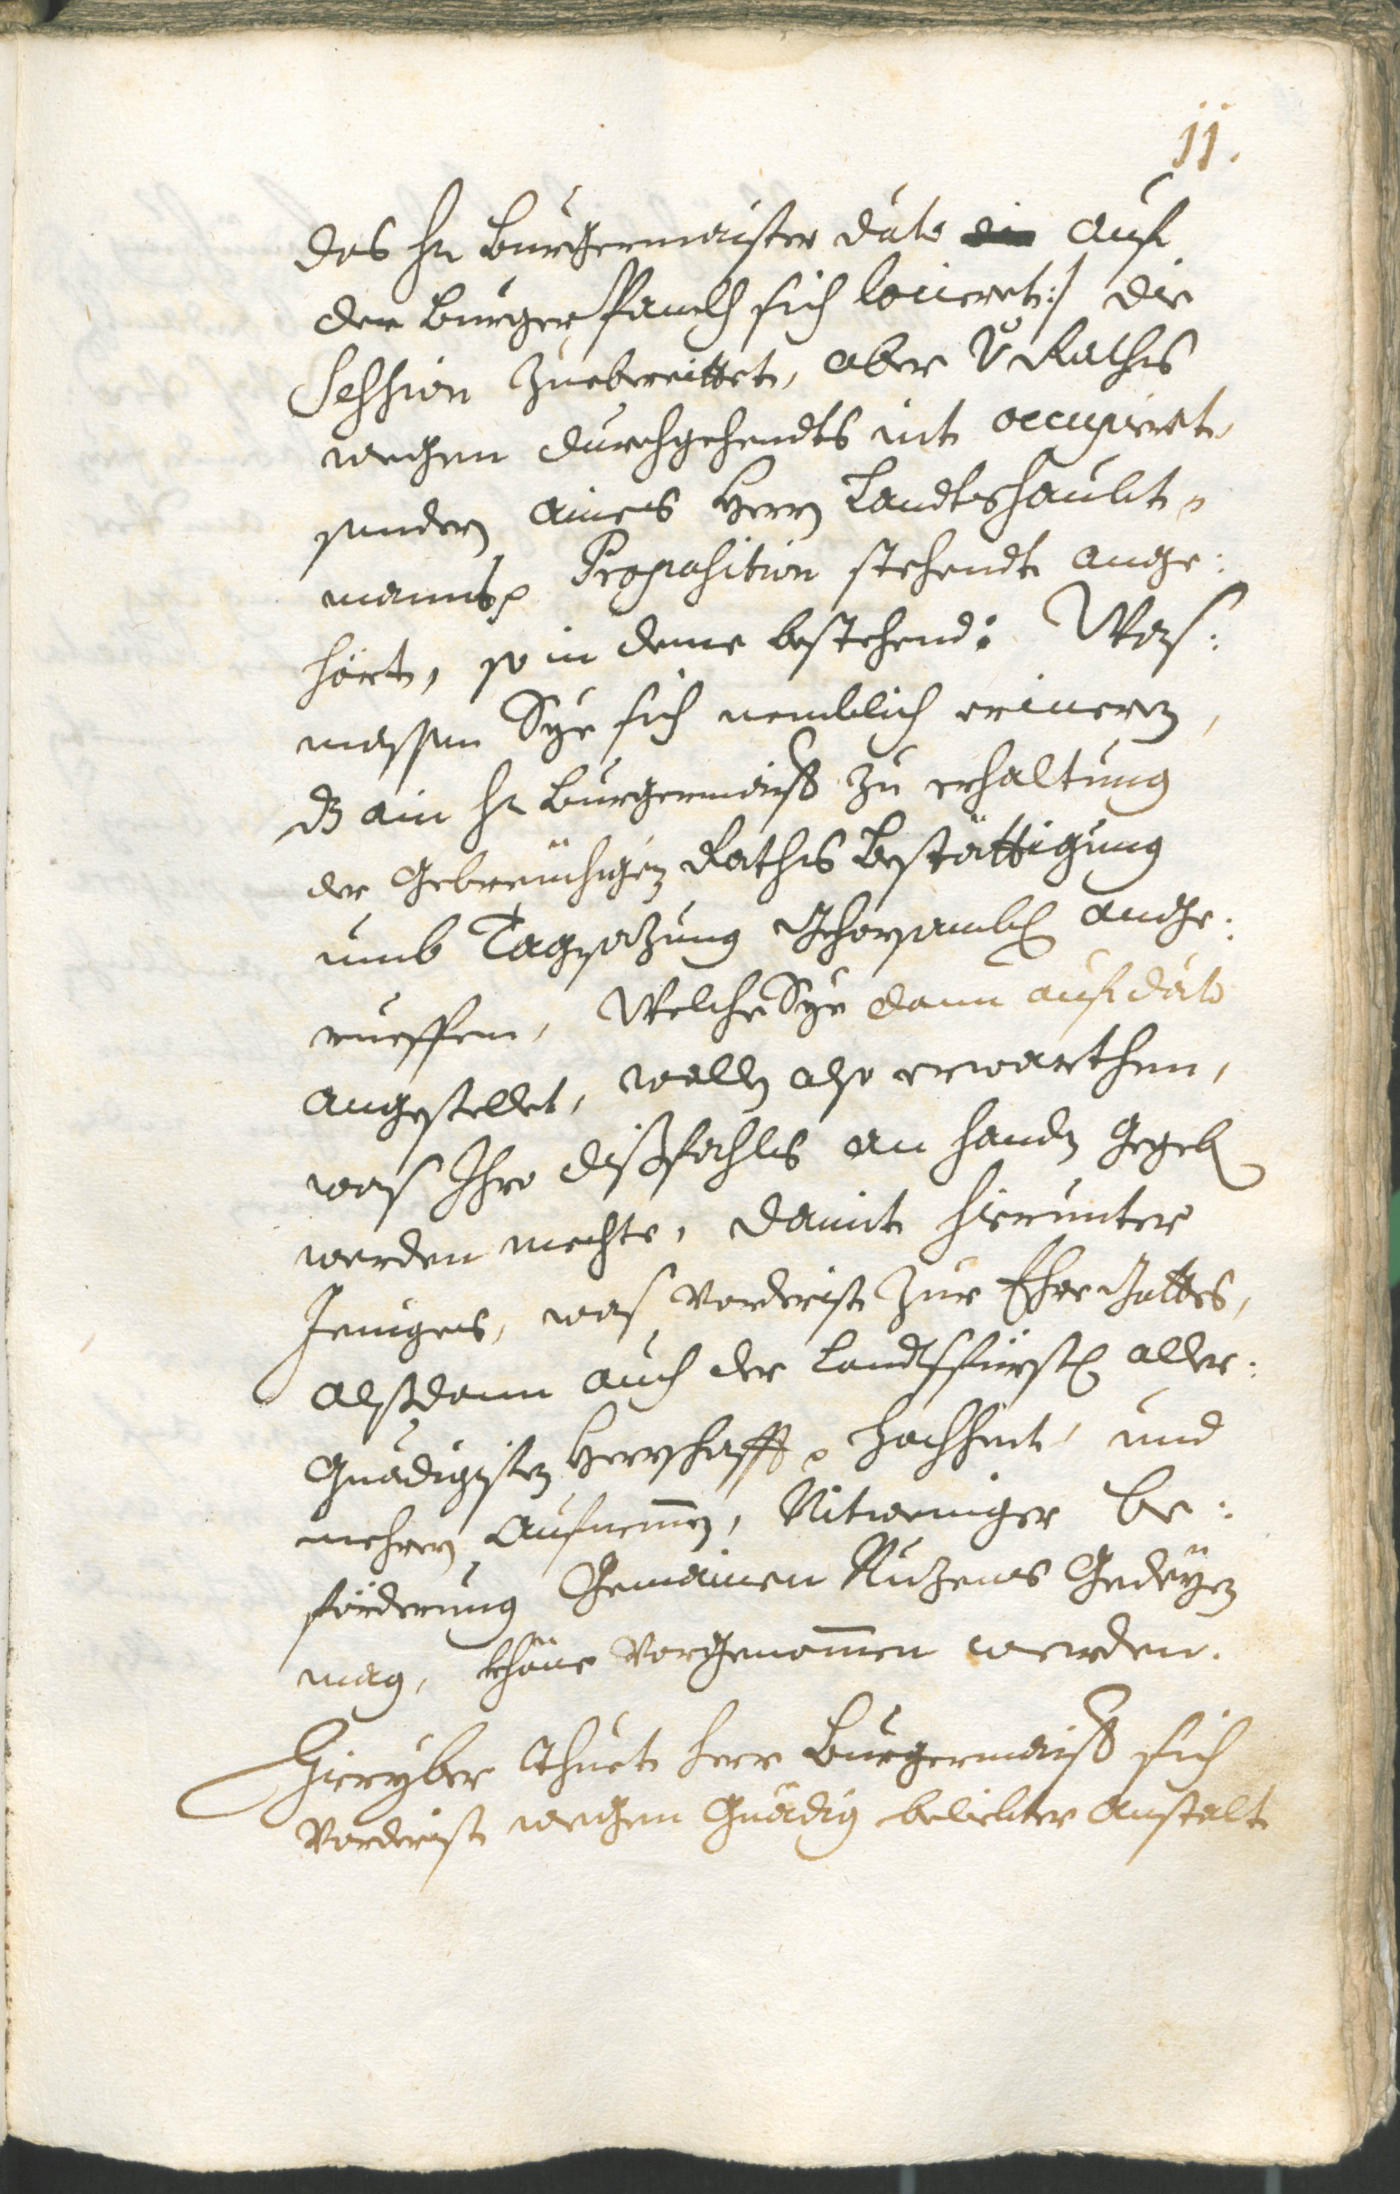 11.
das H: Burgermaister dato auf
der Burger Panckh sich lociret :/ die
Session zuebereittet, aber v: Rathß
wegen durchgehendts nit occupiert,
sondern aines Herrn Landtshaubt-
manns Proposition stehendt ange:
hört, so in deme bestehend: Waß:
massen Sye sich nemblich erinern,
dz ain H: Burgermaist: zu erhaltung
der Gebreüchigen Raths Bestättigung
umb Tagsazung Gehorsambl: ange:
rueffen, Welche Sye dann auf dato
angestellet, wolln also erwarthen,
waß Ihro dißfahls an handn gegeb:
werden mechte, damit hierunter
Jeniges, was vorderist zur Ehre Gottes,
alßdann auch der Landtsfürstl: aller:
Gnädigisten Herrschafft Hochheit, und
mehrern Aufnemmen, Nitweniger be:
förderung Gemainen Nuzens Gedeyen
mag, khöne vorgenommen werden.
Hieryber thuet Herr Burgermaist: sich
vorderist wegen Gnädig beliebter Anstalt